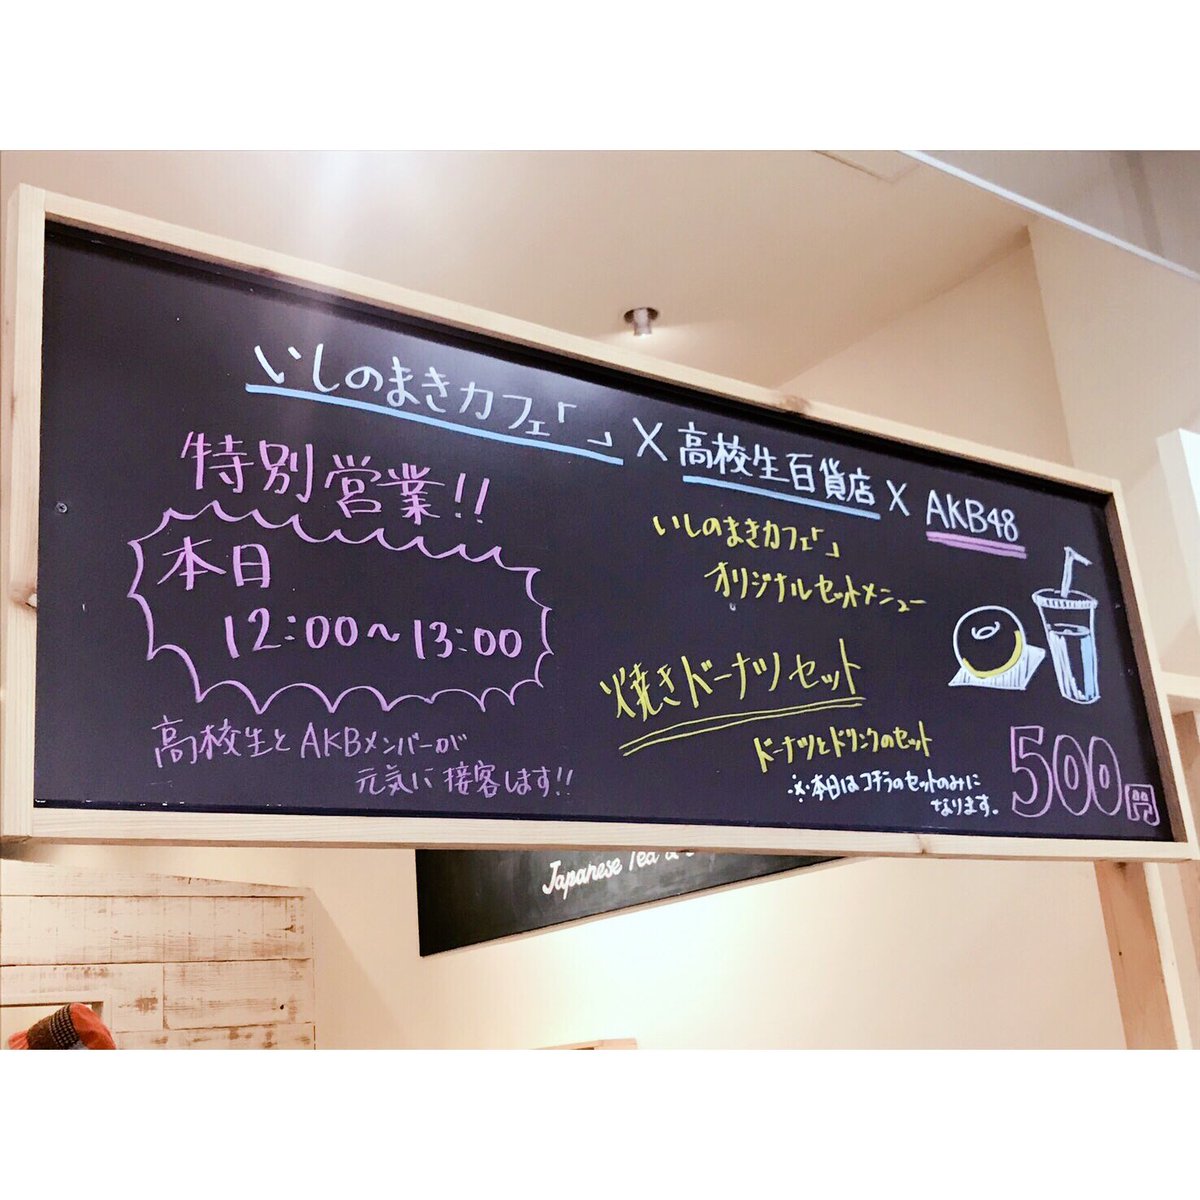 いしのまきカフェ「」×高校生百貨店×AKB48
特別営業!!
本日
12:00〜13:00
高校生とAKBメンバーが
元気に接客します!!
いしのまきカフェ「」
オリジナルセットメニュー
焼きドーナツセット
ドーナツとドリンクのセット
※本日はコチラのセットのみに
なります。
500円
Japanese Tea &